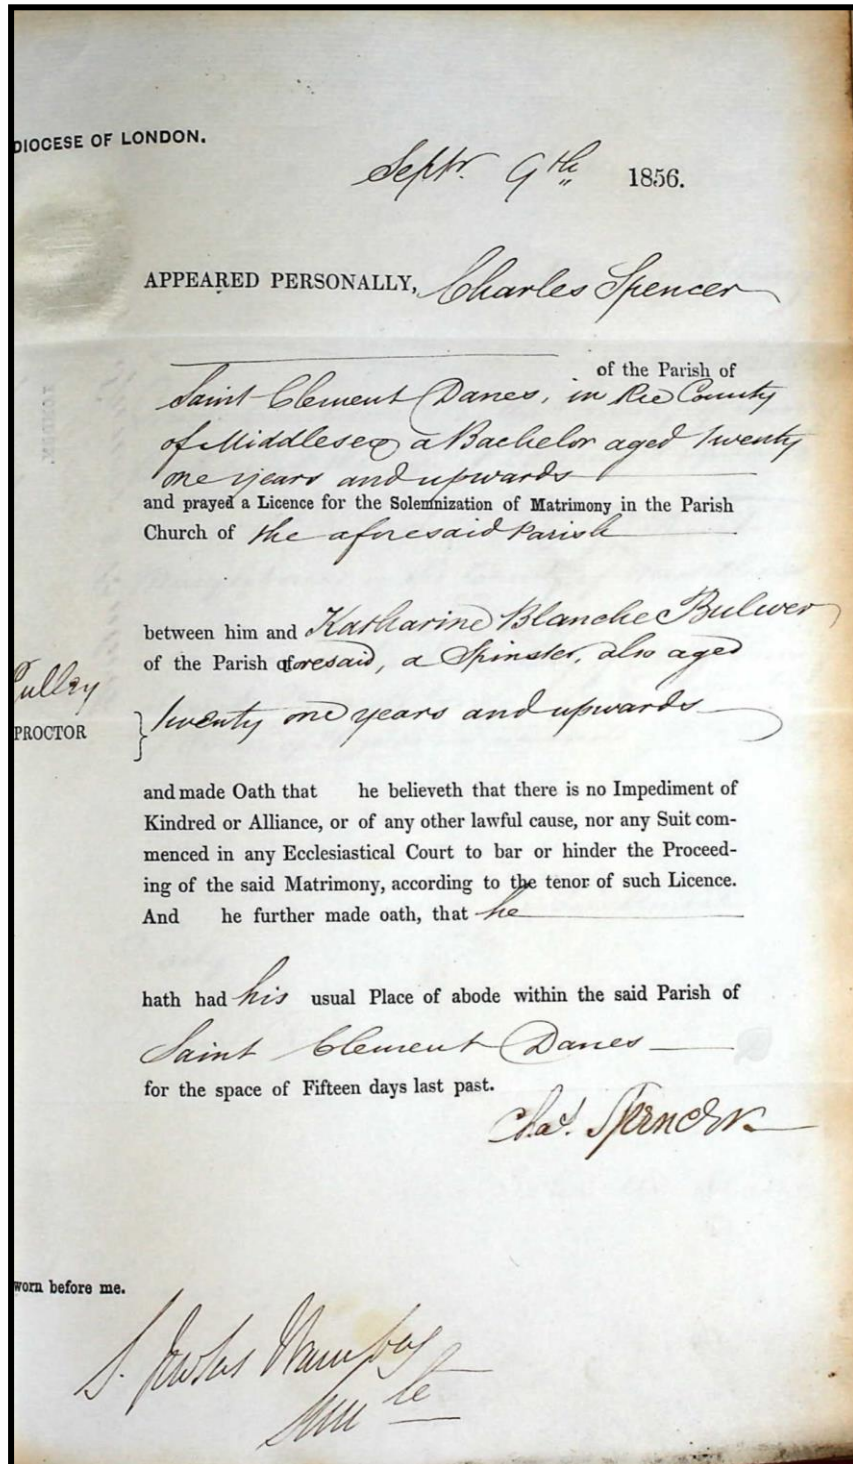 DIOCESE OF LONDON.
Septr. 9th 1856.
APPEARED PERSONALLY, Charles Spencer
of the Parish of
Saint Clement Danes, in the County
of Middlesex a Bachelor aged twenty
one years and upwards
and prayed a Licence for the Solemnization of Matrimony in the Parish
Church of the aforesaid Parish
between him and Katharine Blanche Bulwer
of the Parish aforesaid, a Spinster, also aged
twenty one years and upwards
PROCTOR
and made Oath that he believeth that there is no Impediment of
Kindred or Alliance, or of any other lawful cause, nor any Suit com-
menced in any Ecclesiastical Court to bar or hinder the Proceed-
ing of the said Matrimony, according to the tenor of such Licence.
And he further made oath, that he
hath had his usual Place of abode within the said Parish of
Saint Clement Danes
for the space of Fifteen days last past.
Chas. Spencer
worn before me.